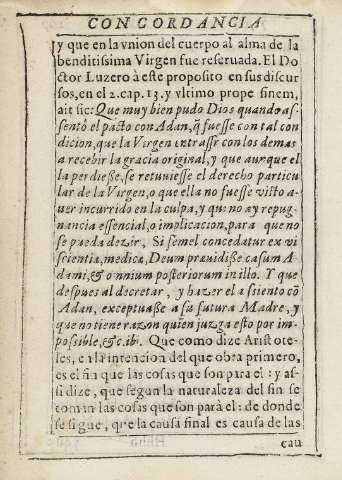 CONCORDANCIA
y que en la vnion del cuerpo al alma de la
benditissima Virgen fue reseruada. El Do
ctor Luzero à este proposito en sus discur
sos, en el 2. cap. 13. y vltimo prope sinem,
ait sic: Que muy bien pudo Dios quando as-
sentò el pacto con Adan, q̃ fuesse con tal con
dicion, que la Virgen entrasse con los demas
a recebir la gracia original, y que aunque el
la perdiesse, se retuuiesse el derecho particu
lar de la Virgen, o que ella no fuesse visto a-
uer incurrido en la culpa, y que no ay repug
nancia essencial, o implicacion, para que no
se pueda dezir, Si semel concedatur ex vi
scientia, medica, Deum præuidisse casum A-
dami, & omnium posteriorum in illo. Y que
despues al decretar, y hazer el assiento cõ
Adan, exceptuasse a su futura Madre, y
que no tiene razon quien juzga esto por im-
possible, &c. ibi. Que como dize Aristote-
les, en la intencion del que obra primero,
es el fin que las cosas que son para el: y as-
si dize, que segun la naturaleza del fin se
toman las cosas que son parà el: de donde
se sigue, que la causa final es causa de las
cau